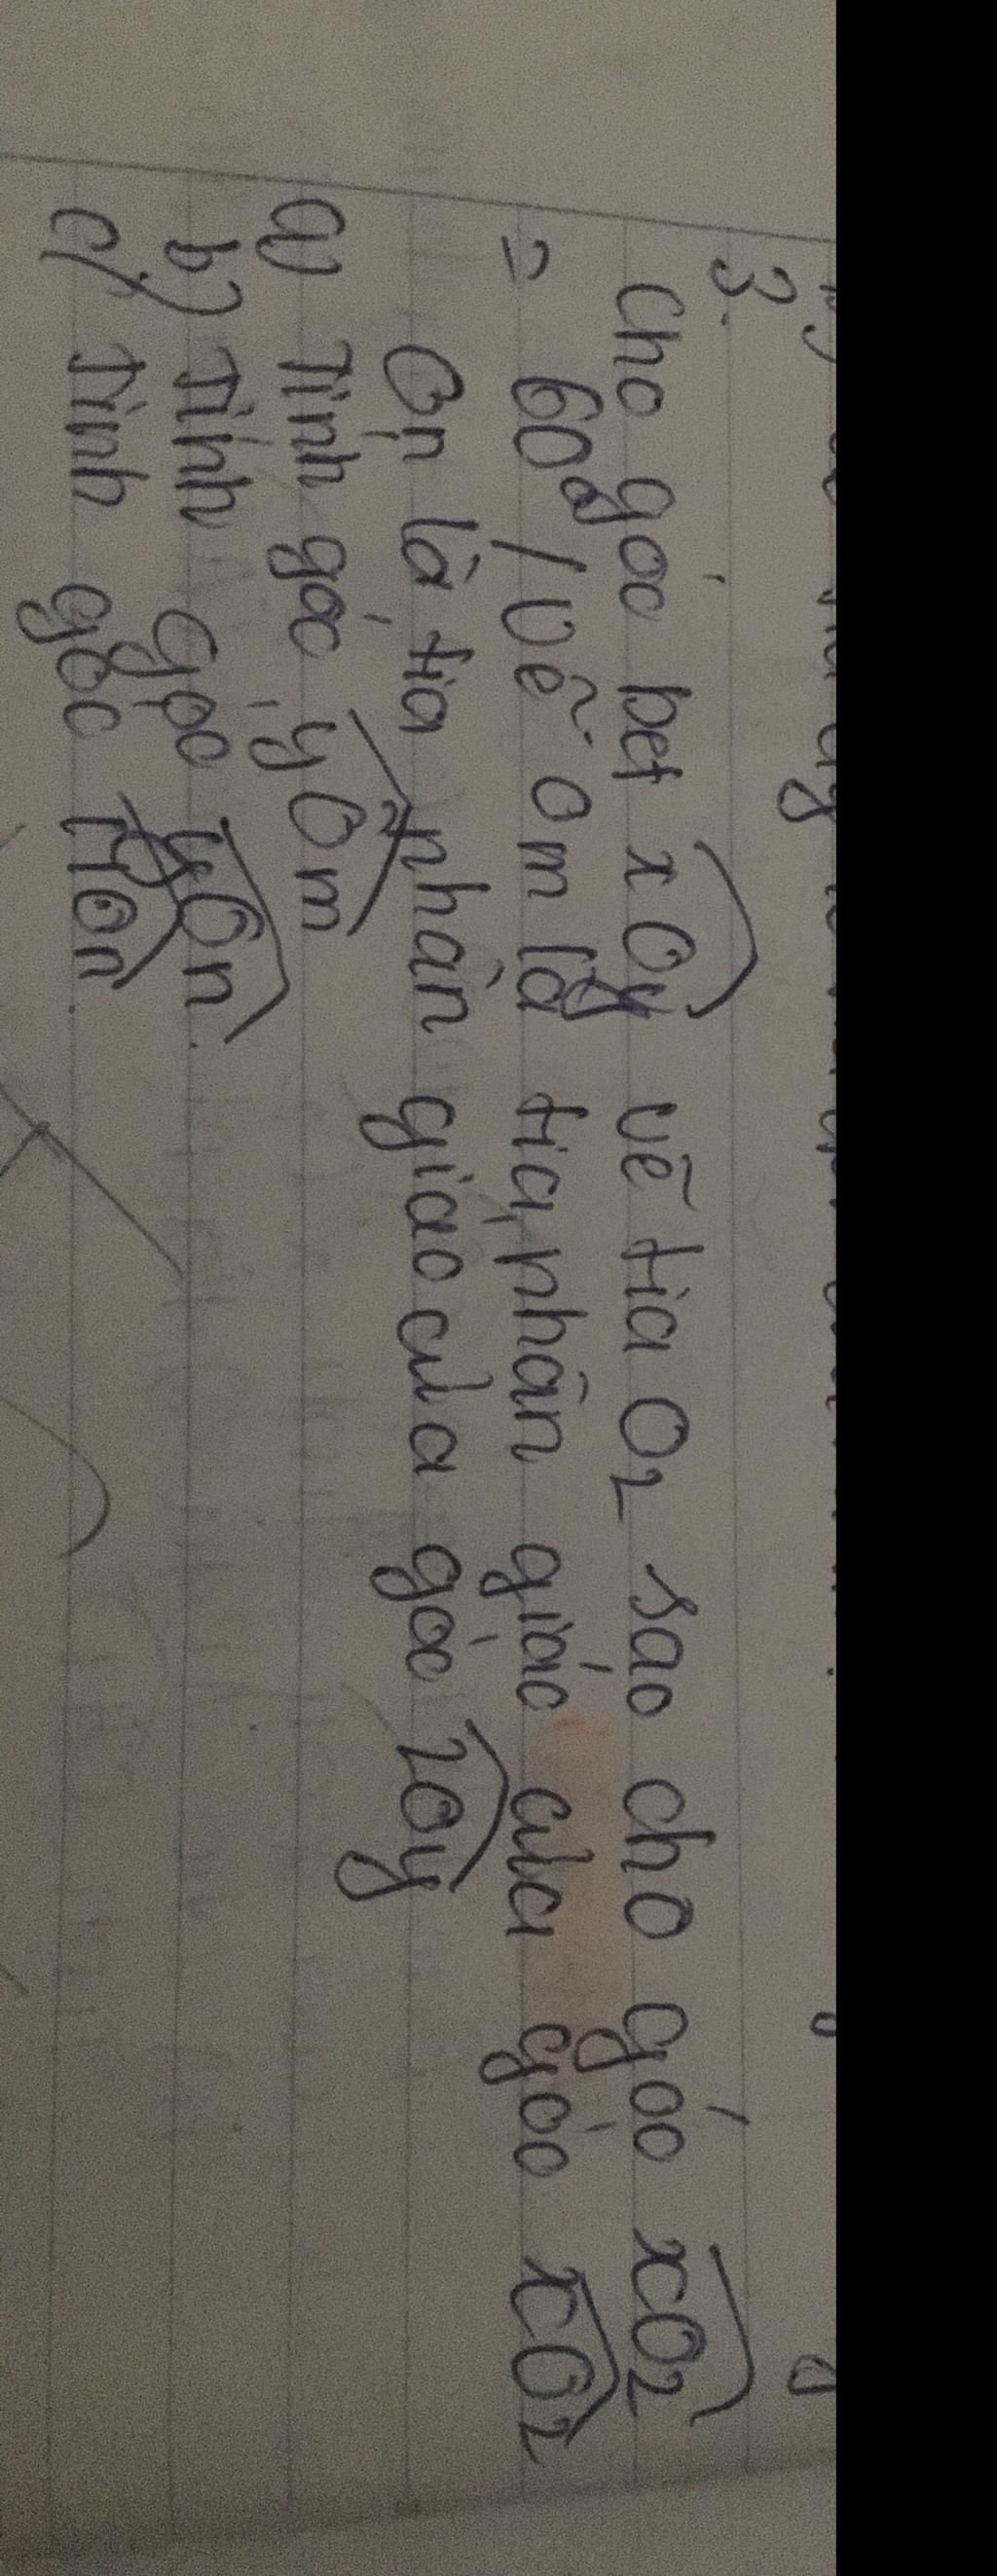 3.
cho góc bet xOy vẽ tia Oz sao cho góc xOz
= 60° / Vẽ Om là tia phân giác của góc xOz
On là tia phân giác của góc zOy
a) Tính góc yOm
b) Tính góc yOn.
c) Tính góc mOn.